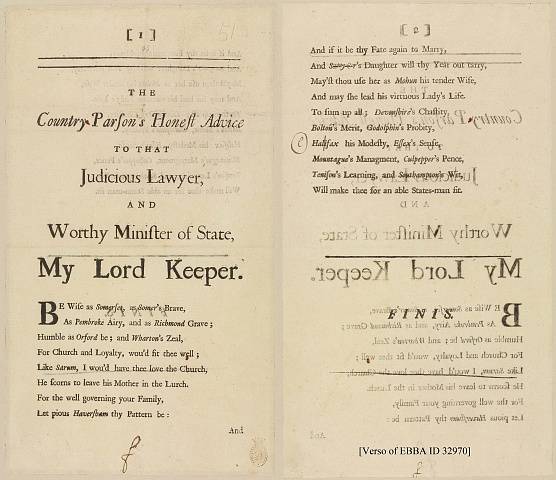 [ 1 ]
THE
Country Parson's Honeſt Advice
TO THAT
Judicious Lawyer,
AND
Worthy Miniſter of State,
My Lord Keeper.
BE Wiſe as Somerſet, as Somer's Brave,
As Pembroke Airy, and as Richmond Grave;
Humble as Orford be; and Wharton's Zeal,
For Church and Loyalty, wou'd fit thee well;
Like Sarum, I wou'd have thee love the Church,
He ſcorns to leave his Mother in the Lurch.
For the well governing your Family,
Let pious Haverſham thy Pattern be:
And
[ 2 ]
And if it be thy Fate again to Marry,
And Seymour's Daughter will thy Year out tarry,
May'ſt thou uſe her as Mohun his tender Wife,
And may ſhe lead his virtuous Lady's Life.
To ſum up all; Devonſhire's Chaſtity,
Bolton's Merit, Godolphin's Probity,
Halifax his Modeſty, Eſſex's Senſe,
Mountague's Managment, Culpepper's Pence,
Teniſon's Learning, and Southampton's Wit,
Will make thee for an able States-man fit.
FINIS.
[Verso of EBBA ID 32970]